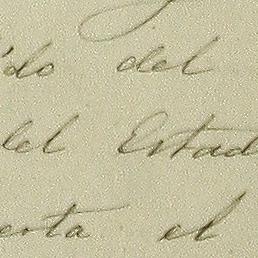 ido del
del Estad
erta el